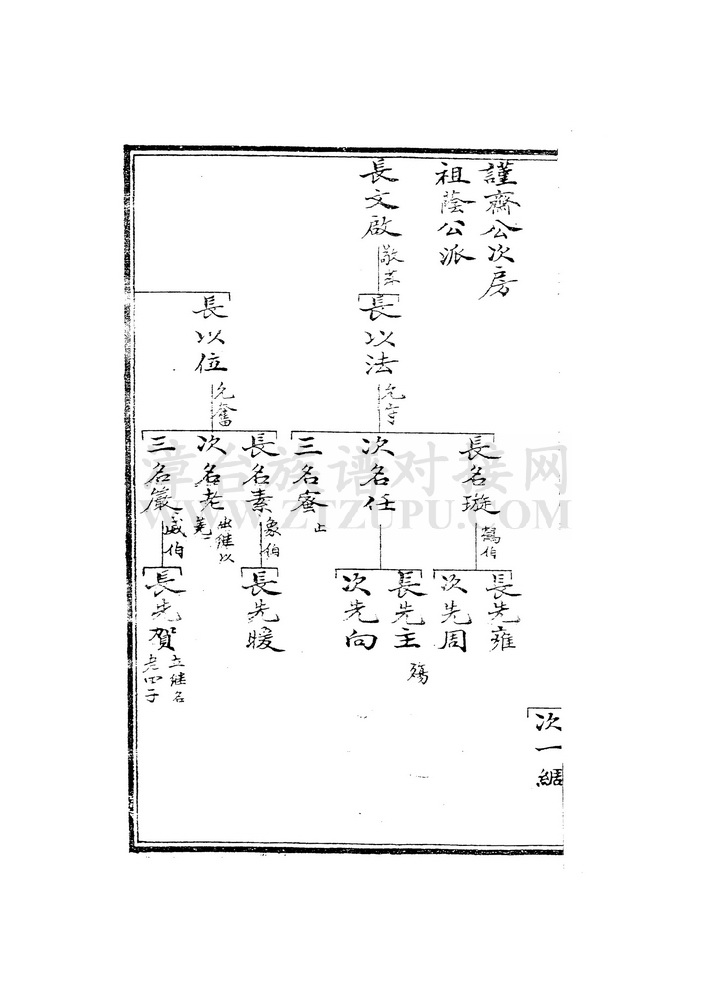 謹齋公次房
祖蔭公派
長文啟
長以法
長以位
長名璇
次名任
三名蜜
長名素 象伯
次名老 出継以
三名嚴 威伯
長先雍
次先周
長先主 殤
次先向
長先暖
長先賀 立継名老四子
次一綑
漳台族谱对接网
WWW.ZTZUPU.COM